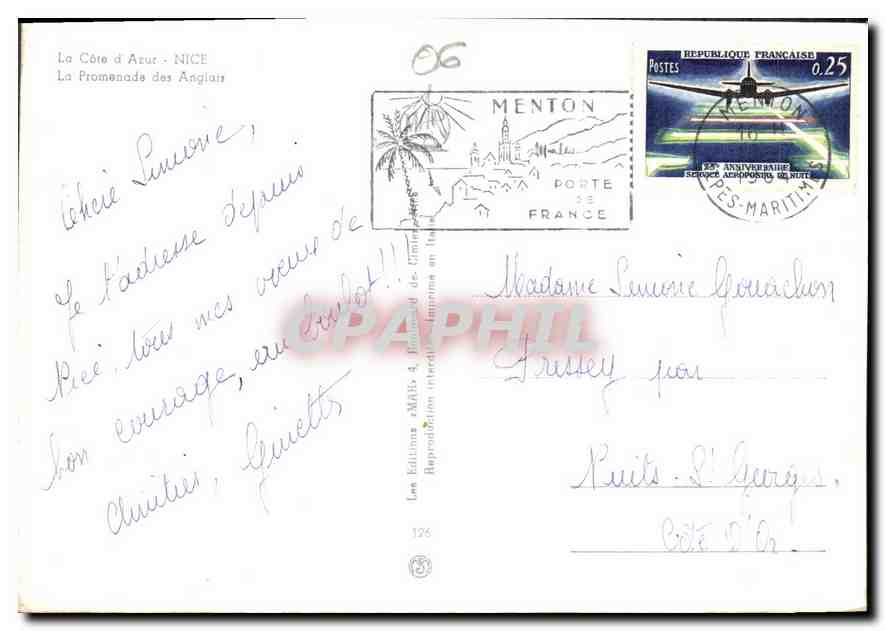 La Côte d'Azur - NICE
La Promenade des Anglais
06
MENTON
PORTE
DE
FRANCE
REPUBLIQUE FRANÇAISE
POSTES
0,25
25e ANNIVERSAIRE
SERVICE AEROPOSTAL DE NUIT
MENTON
ALPES-MARITIMES
Simone,
Je t'adresse depuis
Nice, tous mes vœux de
bon courage, au boulot!!!
Amitiés, Ginette
Les Editions «MAR» 4, Boulevard de Cimiez
Reproduction interdite - Imprimé en Italie
126
CPAPHIL
Madame Simone Gouachon
Pressey par
Nuits-St Georges.
Côte D'Or.